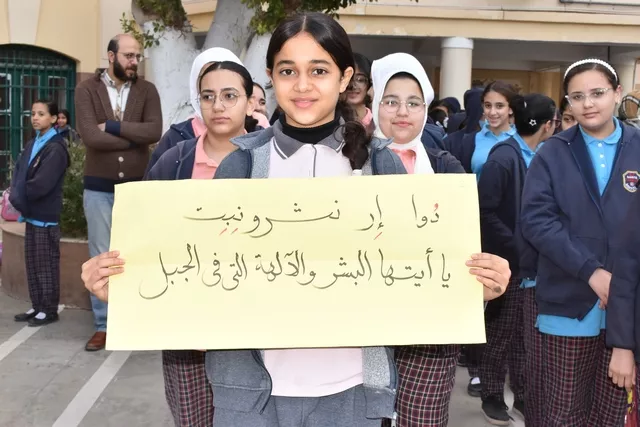 دُوا إِر نشرو نِبِت
يا أيتها البشر والآلهة التى فى الجبل